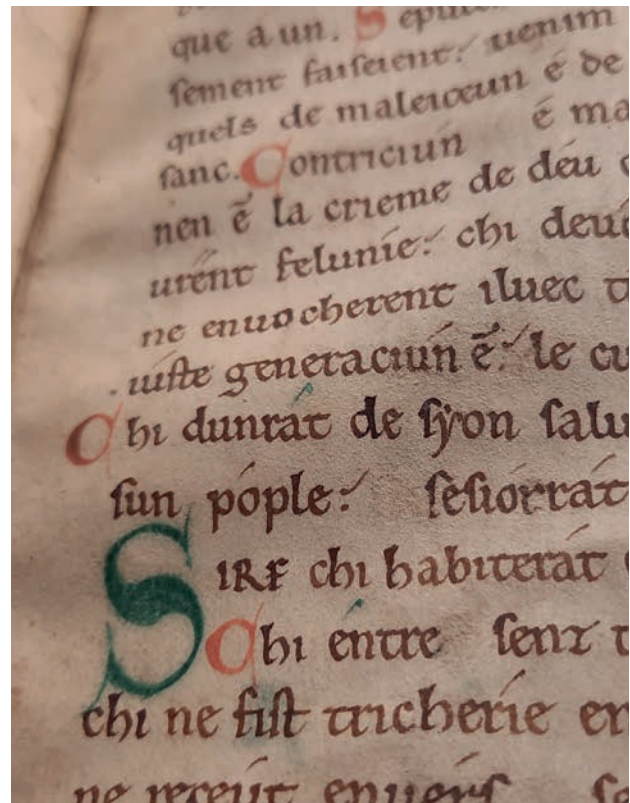 que a un. Sepul
sement faiseient: uenim
quels de maleiceun é de
sanc. Contriciun é ma
nen ē la crieme de déu
urent felunie: chi deu
ne enuocherent iluec
iuste generaciun ē: le cu
Chi dunrat de syon salu
sun pople: sesiorrat
SIRE chi habiterat
Chi entre senz
chi ne fist tricherie en
ne receut enuers